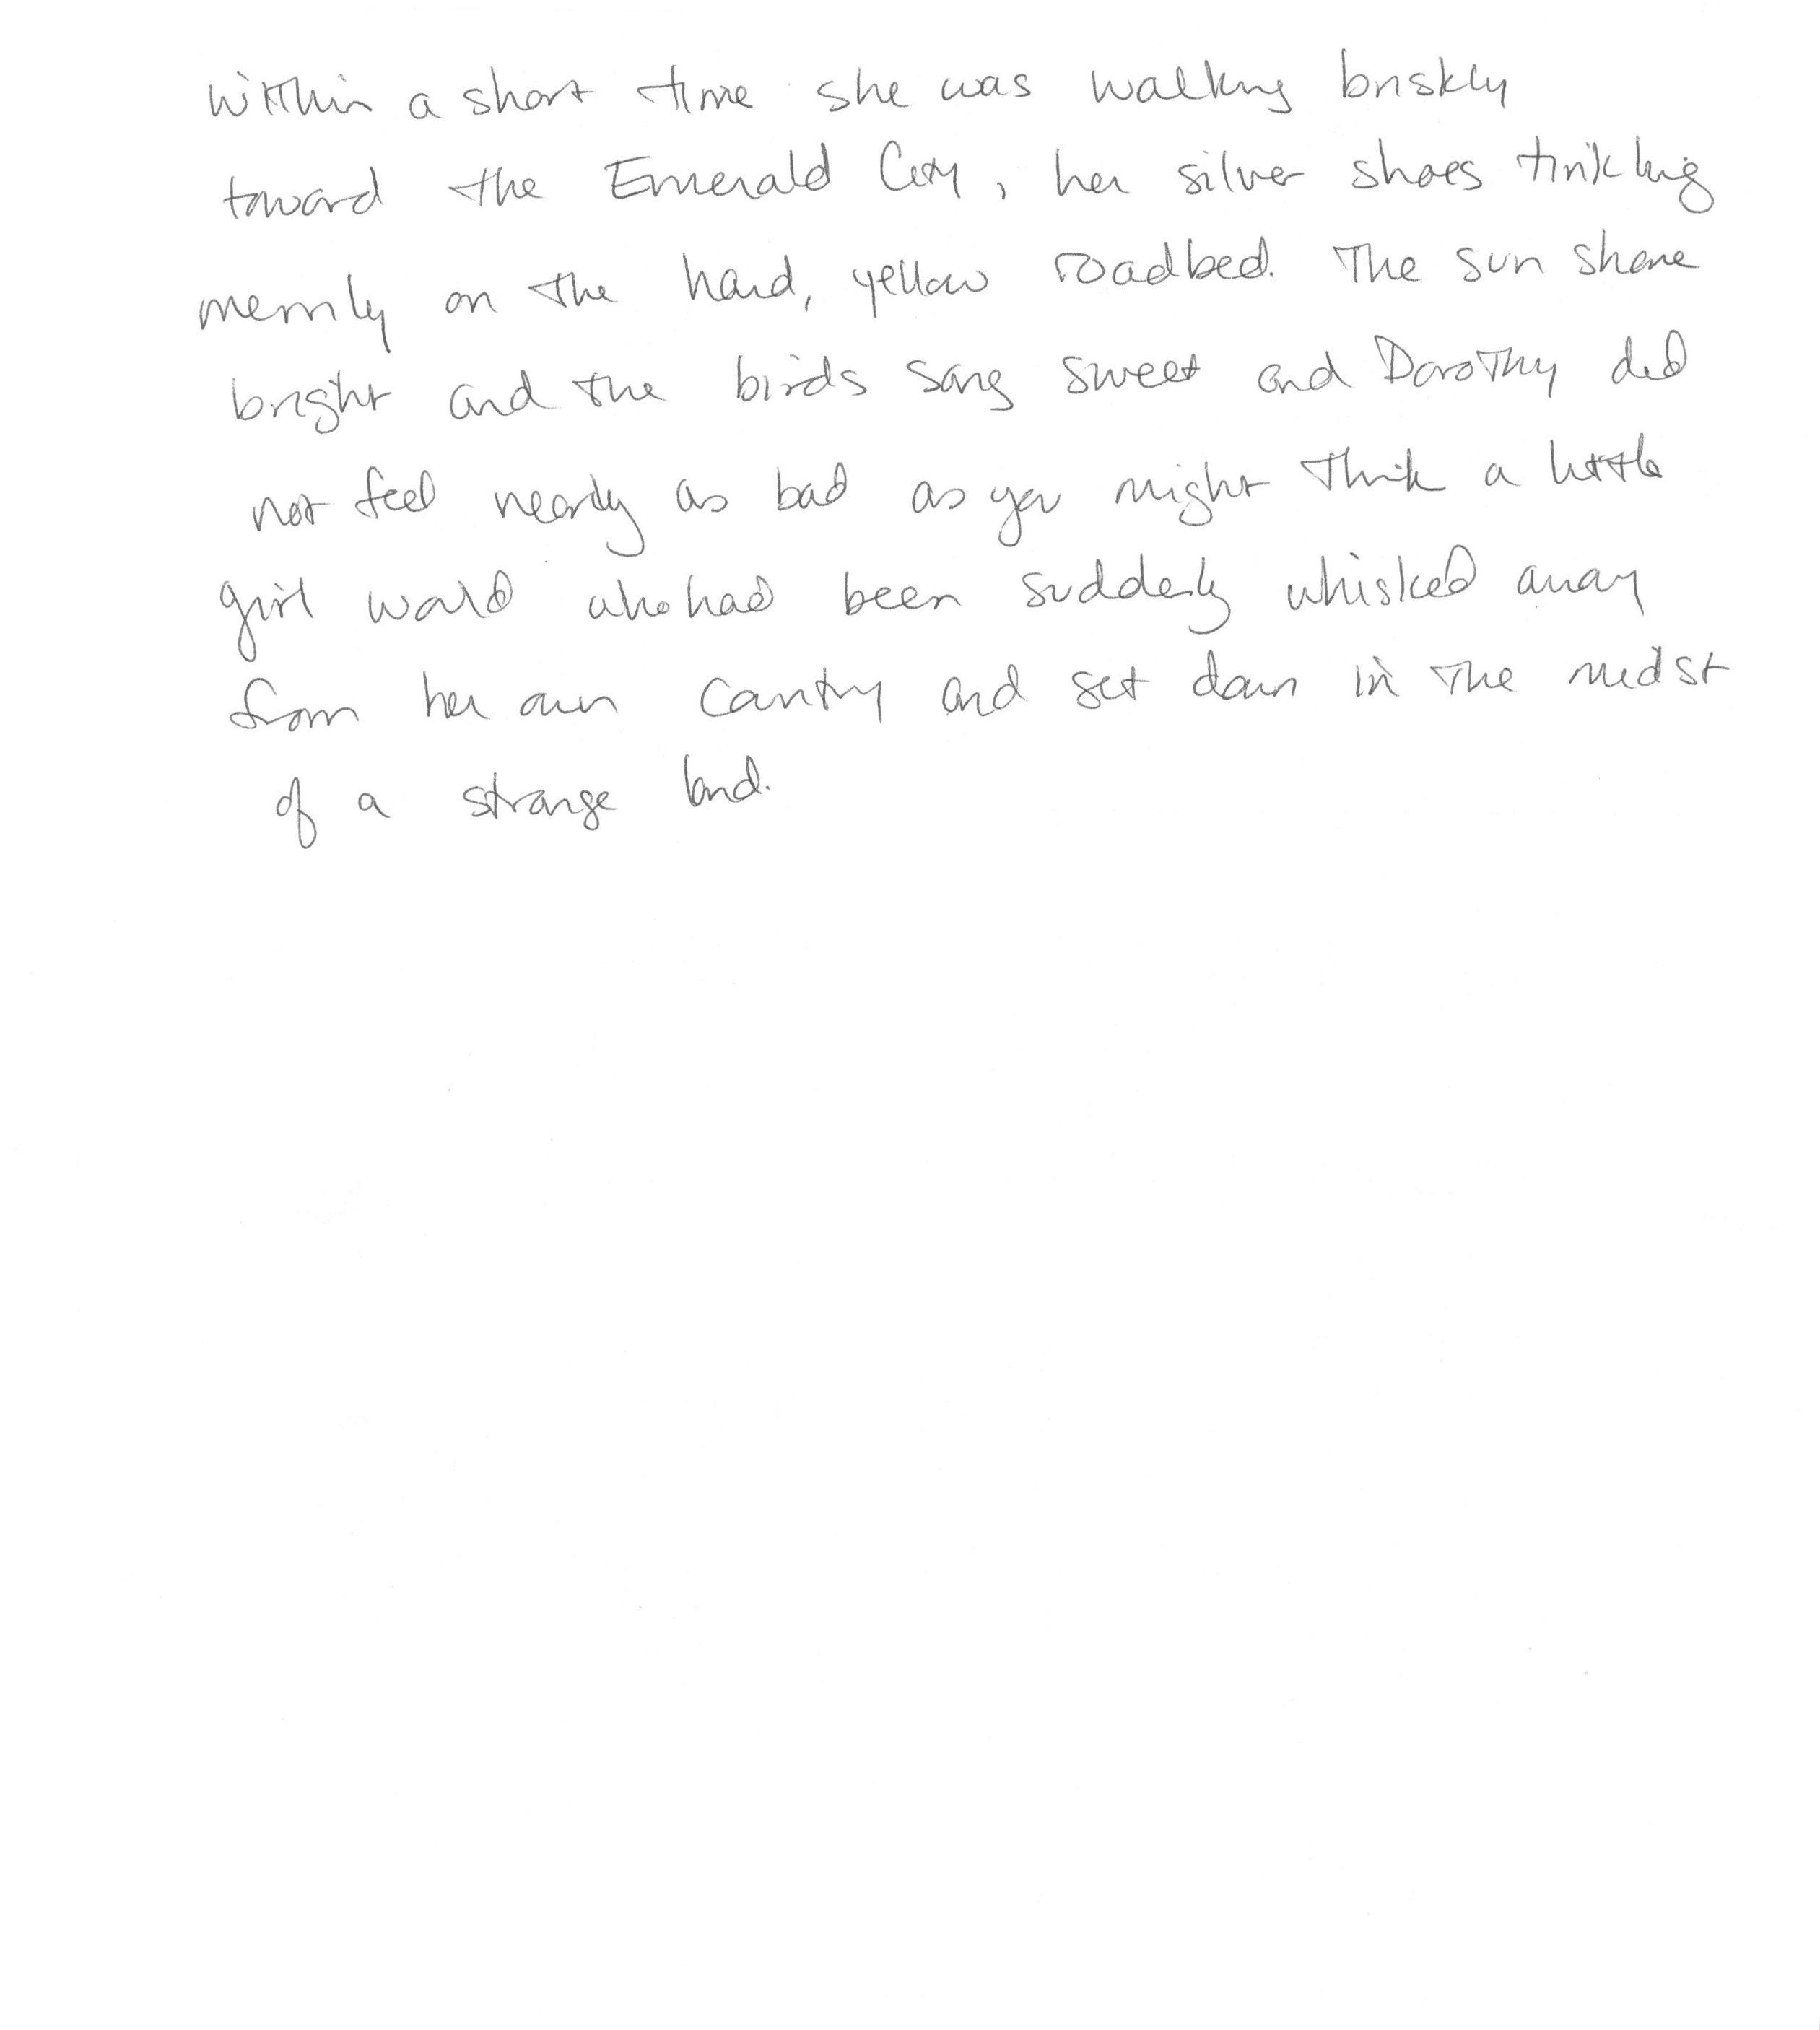 within a short time she was walking briskly
toward the Emerald City, her silver shoes tinkling
merrily on the hard, yellow roadbed. The sun shone
bright and the birds sang sweet and Dorothy did
not feel nearly as bad as you might think a little
girl would who had been suddenly whisked away
from her own country and set down in the midst
of a strange land.